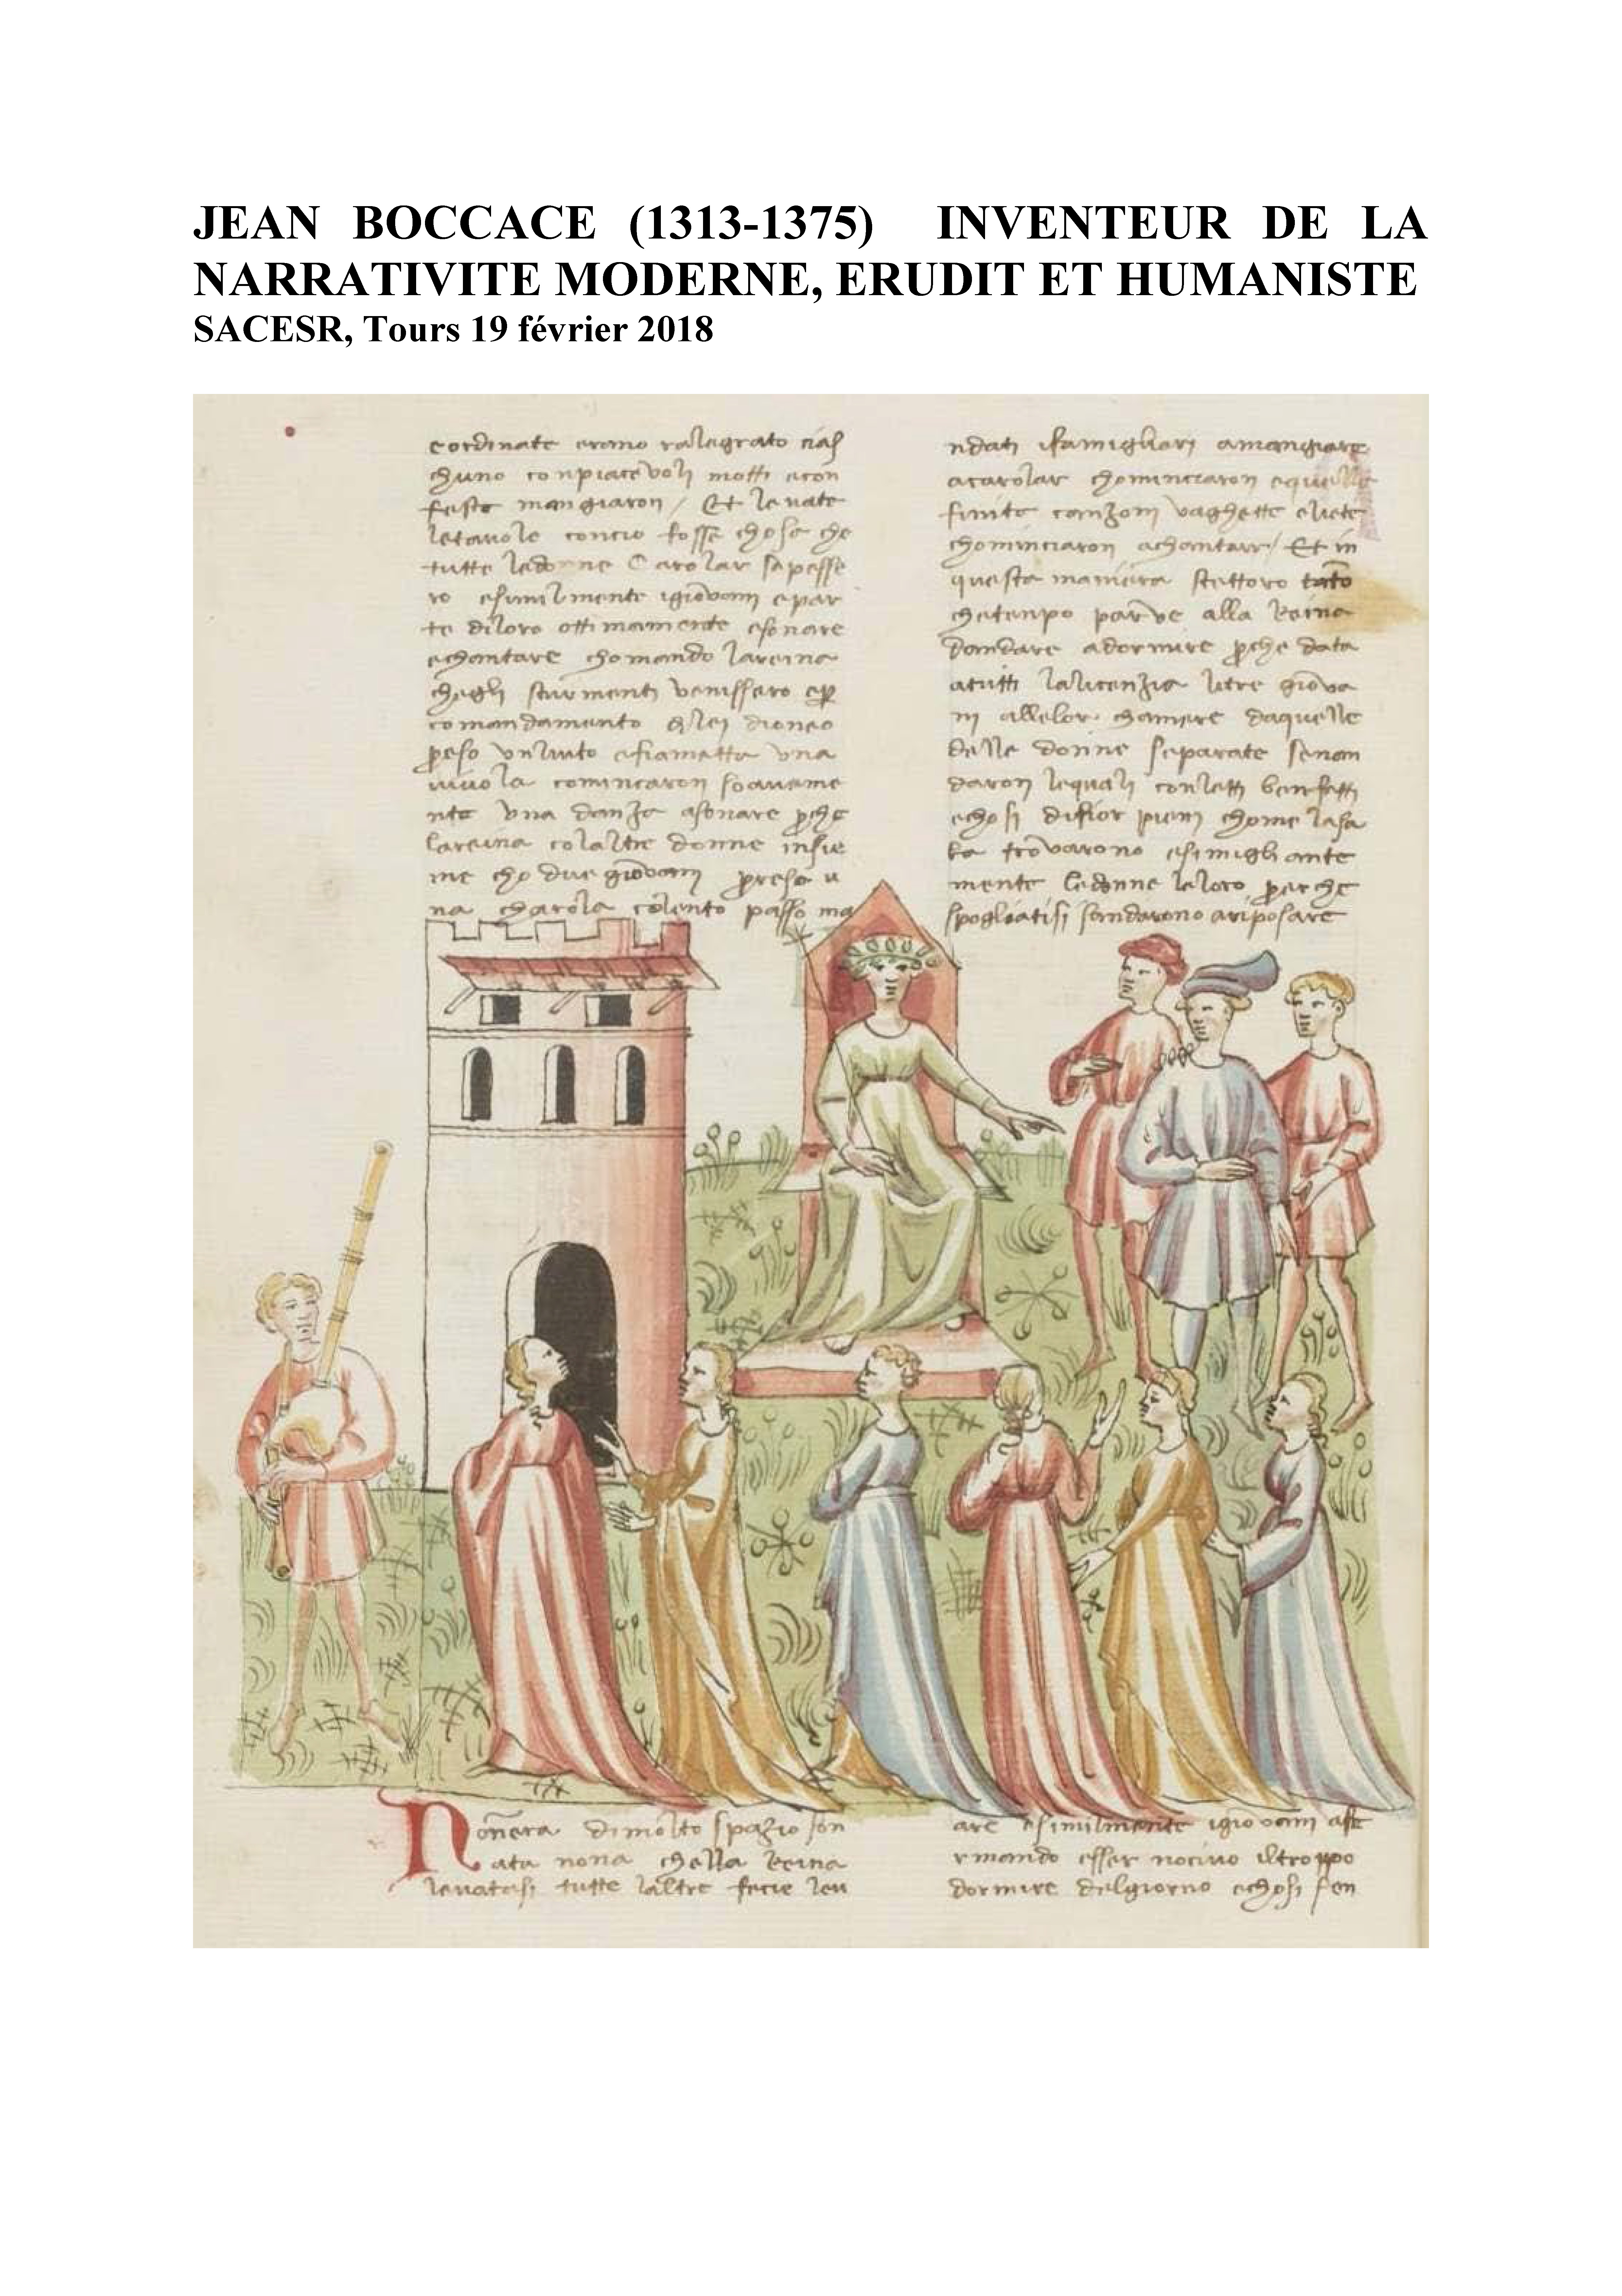 JEAN BOCCACE (1313-1375) INVENTEUR DE LA
NARRATIVITE MODERNE, ERUDIT ET HUMANISTE
SACESR, Tours 19 février 2018
cordinate erano ralegrato
chuno conpiacevoli motti econ
feste mangiaron / Et levate
letavole concio fosse chosa che
tutte ledonne Carolar sapesse
ro esimilmente igiovani epar
te diloro ottimamente esonare
echantare chomando lareina
chegli sturmenti venissero
comandamento dilei dioneo
preso unliuto efiametta una
viuola comincaron soaueme
nte una danza asonare perche
lareina colaltre donne insie
me cho due giovani presa u
na charola colento passo ma
ndati ifamigliari amangiare
acarolar chominciaron equella
finita canzoni vaghette eliete
chominciaron achantare / Et in
questa maniera stettoro tanto
chetenpo parve alla Reina
dandare adormire perche data
atutti lalicenzia litre giova
ni allelor chamere daquelle
delle donne separate senan
daron lequali conletti benfatti
echosi difior pieni chome lasa
la trovarono esimigliante
mente ledonne leloro perche
spogliatisi sandarono ariposare
Nonera dimolto spazio son
ata nona chella Reina
levatasi tutte laltre fecie lev
are esimilmente igiovani afe
rmando esser nocivo iltroppo
dormire delgiorno echosi sen